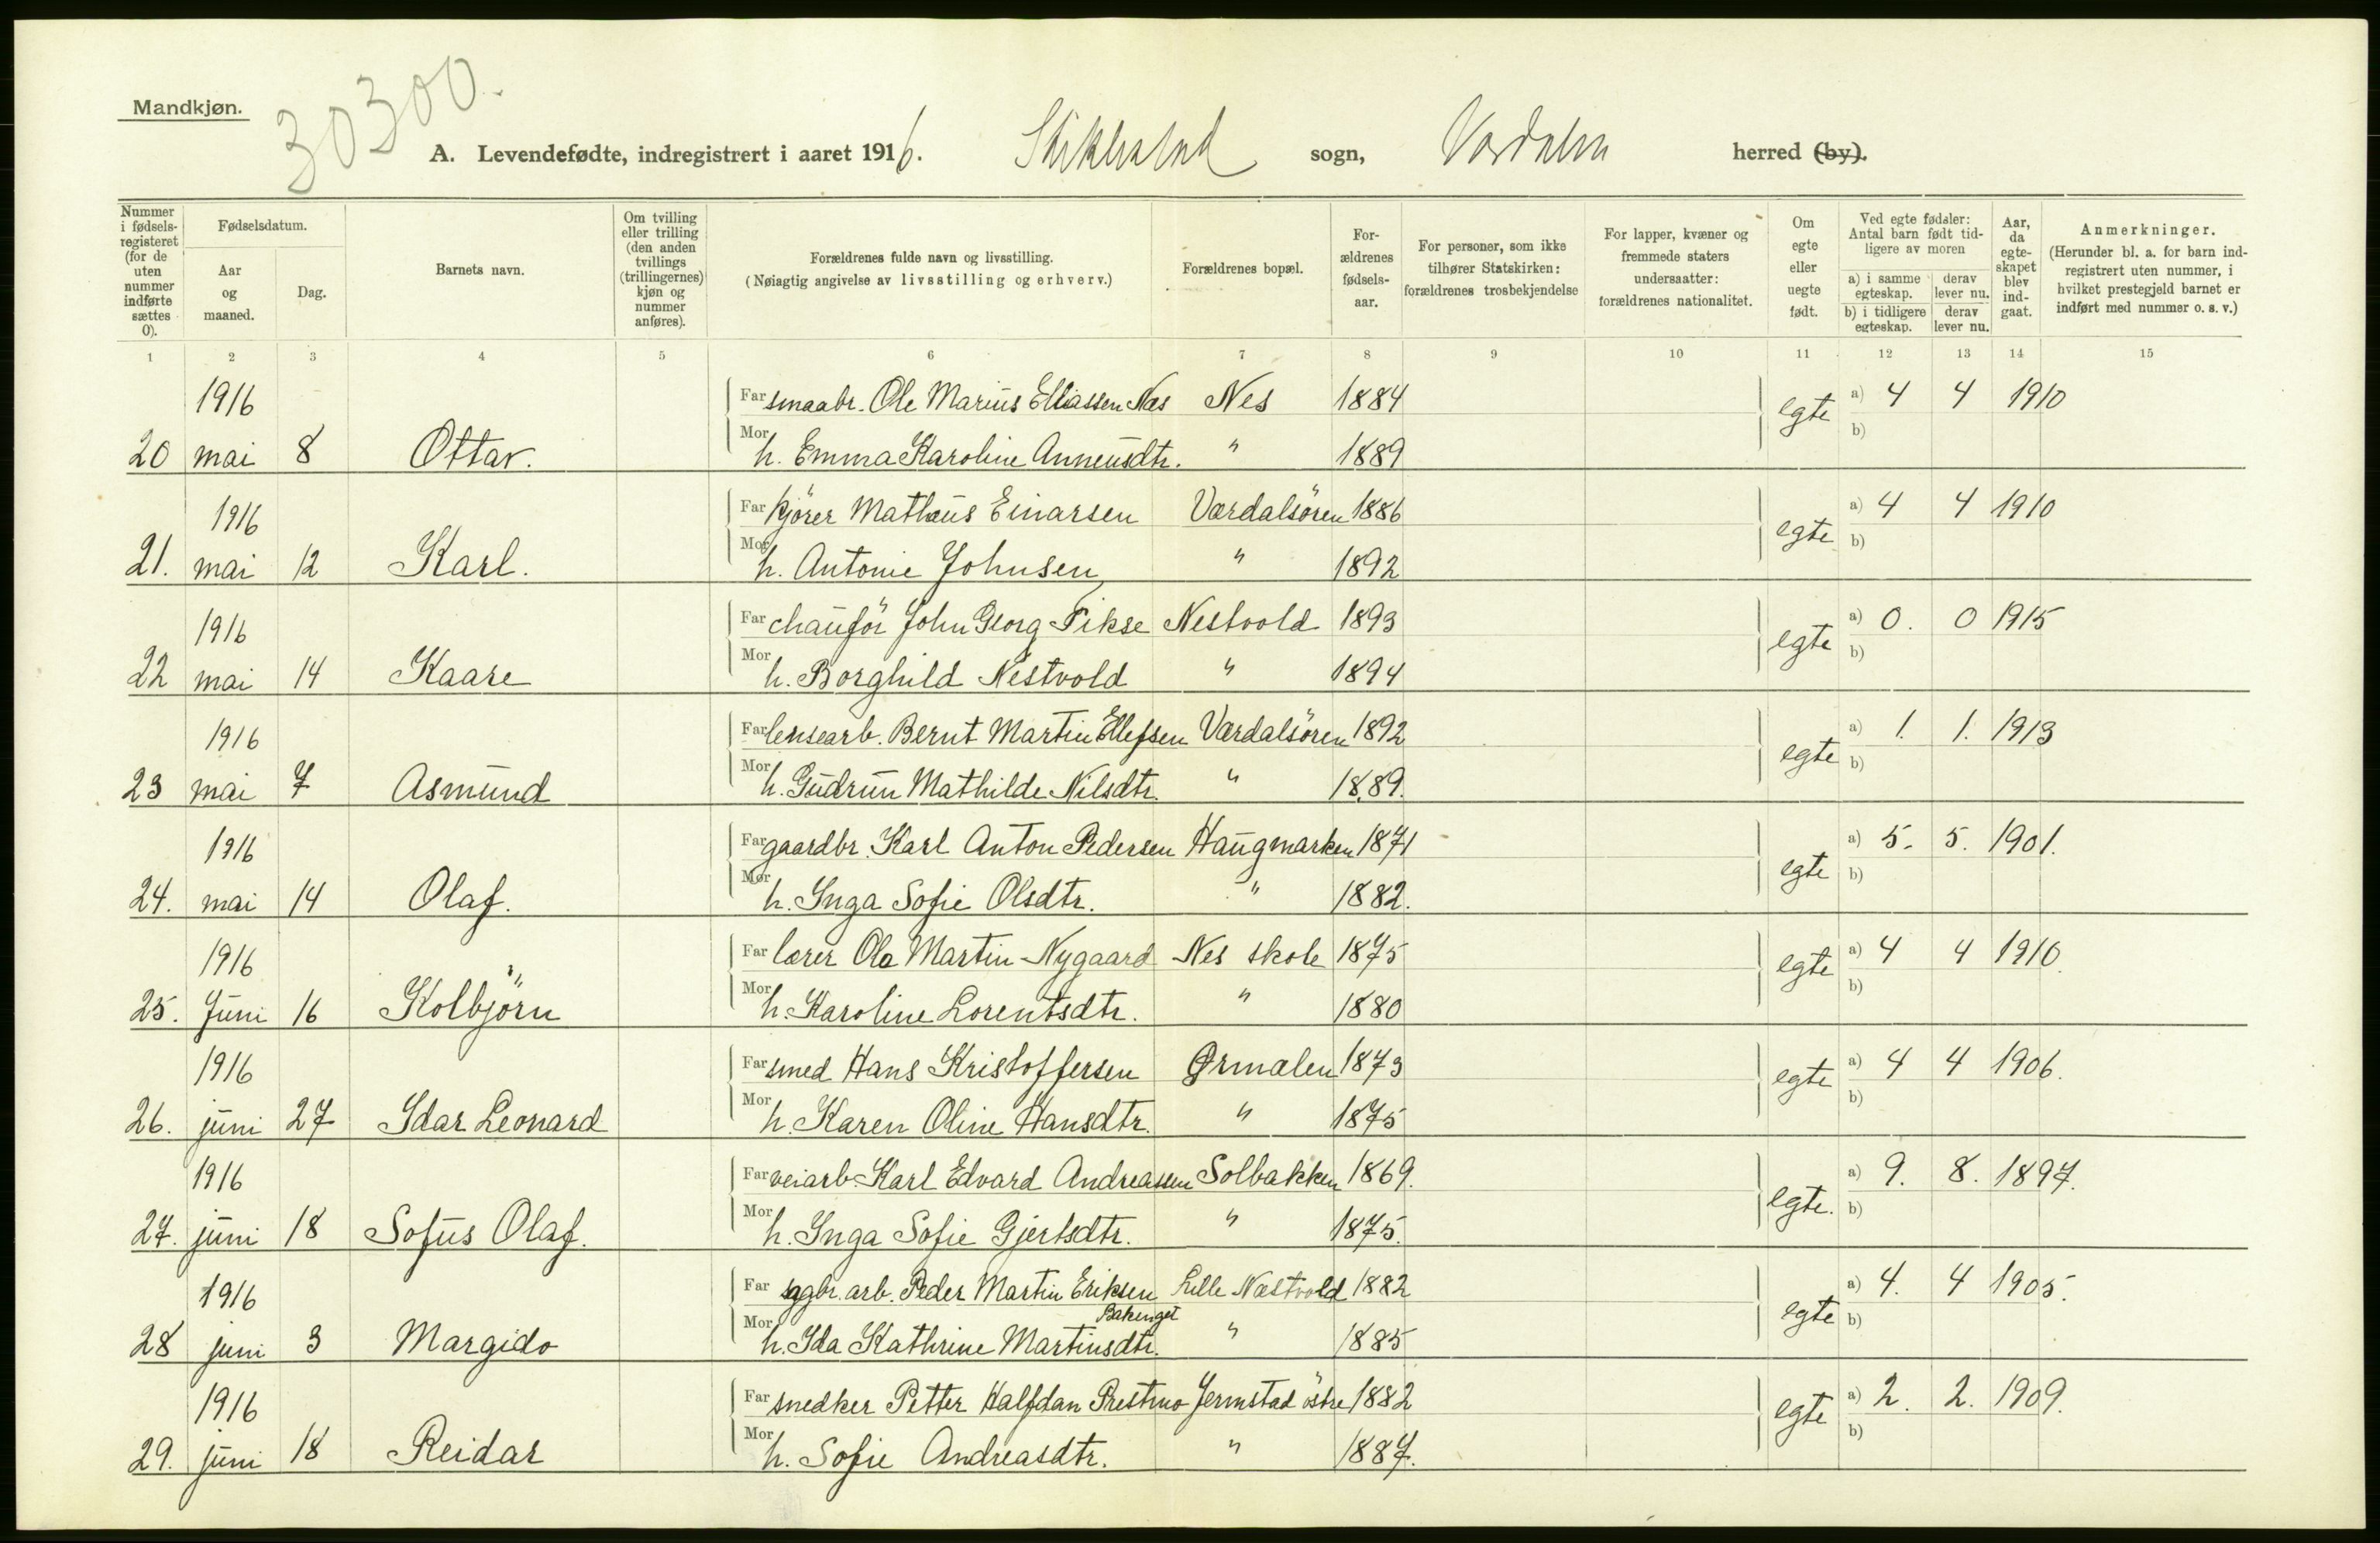 Mandkjøn.
30300.
A. Levendefødte, indregistrert i aaret 1916. Stiklestad sogn, Værdalen herred (by).
Nummer i fødselsregisteret (for de uten nummer indførte sættes 0).
Fødselsdatum.
Aar og maaned.
Dag.
Barnets navn.
Om tvilling eller trilling (den anden tvillings (trillingernes) kjøn og nummer anføres).
Forældrenes fulde navn og livsstilling. (Nøiagtig angivelse av livsstilling og erhverv.)
Forældrenes bopæl.
Forældrenes fødselsaar.
For personer, som ikke tilhører Statskirken: forældrenes trosbekjendelse
For lapper, kvæner og fremmede staters undersaatter: forældrenes nationalitet.
Om egte eller uegte født.
Ved egte fødsler: Antal barn født tidligere av moren
a) i samme egteskap.
derav lever nu.
b) i tidligere egteskap.
derav lever nu.
Aar, da egteskapet blev indgaat.
Anmerkninger. (Herunder bl. a. for barn indregistrert uten nummer, i hvilket prestegjeld barnet er indført med nummer o. s. v.)
1 2 3 4 5 6 7 8 9 10 11 12 13 14 15
1916 Far smaabr. Ole Marius Eliassen Næs Nes 1884 egte a) 4 4 1910
20 mai 8 Ottar. Mor h. Emma Karoline Anneusdtr. " 1889 b)
1916 Far kjörer Mathæus Einarsen Værdalsören 1886 egte a) 4 4 1910
21. mai 12 Karl. Mor h. Antonie Johnsen " 1892 b)
1916 Far chauför John Georg Fikse Nestvold 1893 egte a) 0. 0 1915
22 mai 14 Kaare Mor h. Borghild Nestvold " 1894 b)
1916 Far lensearb. Bernt Martin Ellefsen Værdalsören 1892 egte a) 1. 1. 1913
23 mai 7 Asmund Mor h. Gudrun Mathilde Nilsdtr. " 1889. b)
1916 Far gaardbr. Karl Anton Pedersen Haugmarken 1871 egte a) 5. 5. 1901.
24. mai 14 Olaf. Mor h. Inga Sofie Olsdtr. " 1882. b)
1916 Far lærer Ole Martin Nygaard Nes skole 1875 egte a) 4 4 1910.
25. Juni 16 Kolbjörn Mor h. Karoline Lorentsdtr. " 1880 b)
1916 Far smed Hans Kristoffersen Ørmælen 1873 egte a) 4 4 1906.
26. juni 27 Idar Leonard Mor h. Karen Oline Hansdtr. " 1875 b)
1916 Far veiarb. Karl Edvard Andreassen Solbakken 1869. egte. a) 9. 8. 1897.
27. juni 18 Sofus Olaf. Mor h. Inga Sofie Gjertsdtr. " 1875. b)
1916 Far sagbr. arb. Peder Martin Eriksen Lille Næstvold 1882 egte a) 4. 4 1905.
Bakenget
28 juni 3 Margido Mor h. Ida Kathrine Martinsdtr. " 1885 b)
1916 Far snedker Petter Halfdan Prestmo Jermstad östre 1882 egte a) 2. 2. 1909.
29. juni 18 Reidar Mor h. Sofie Andreasdtr. " 1887. b)